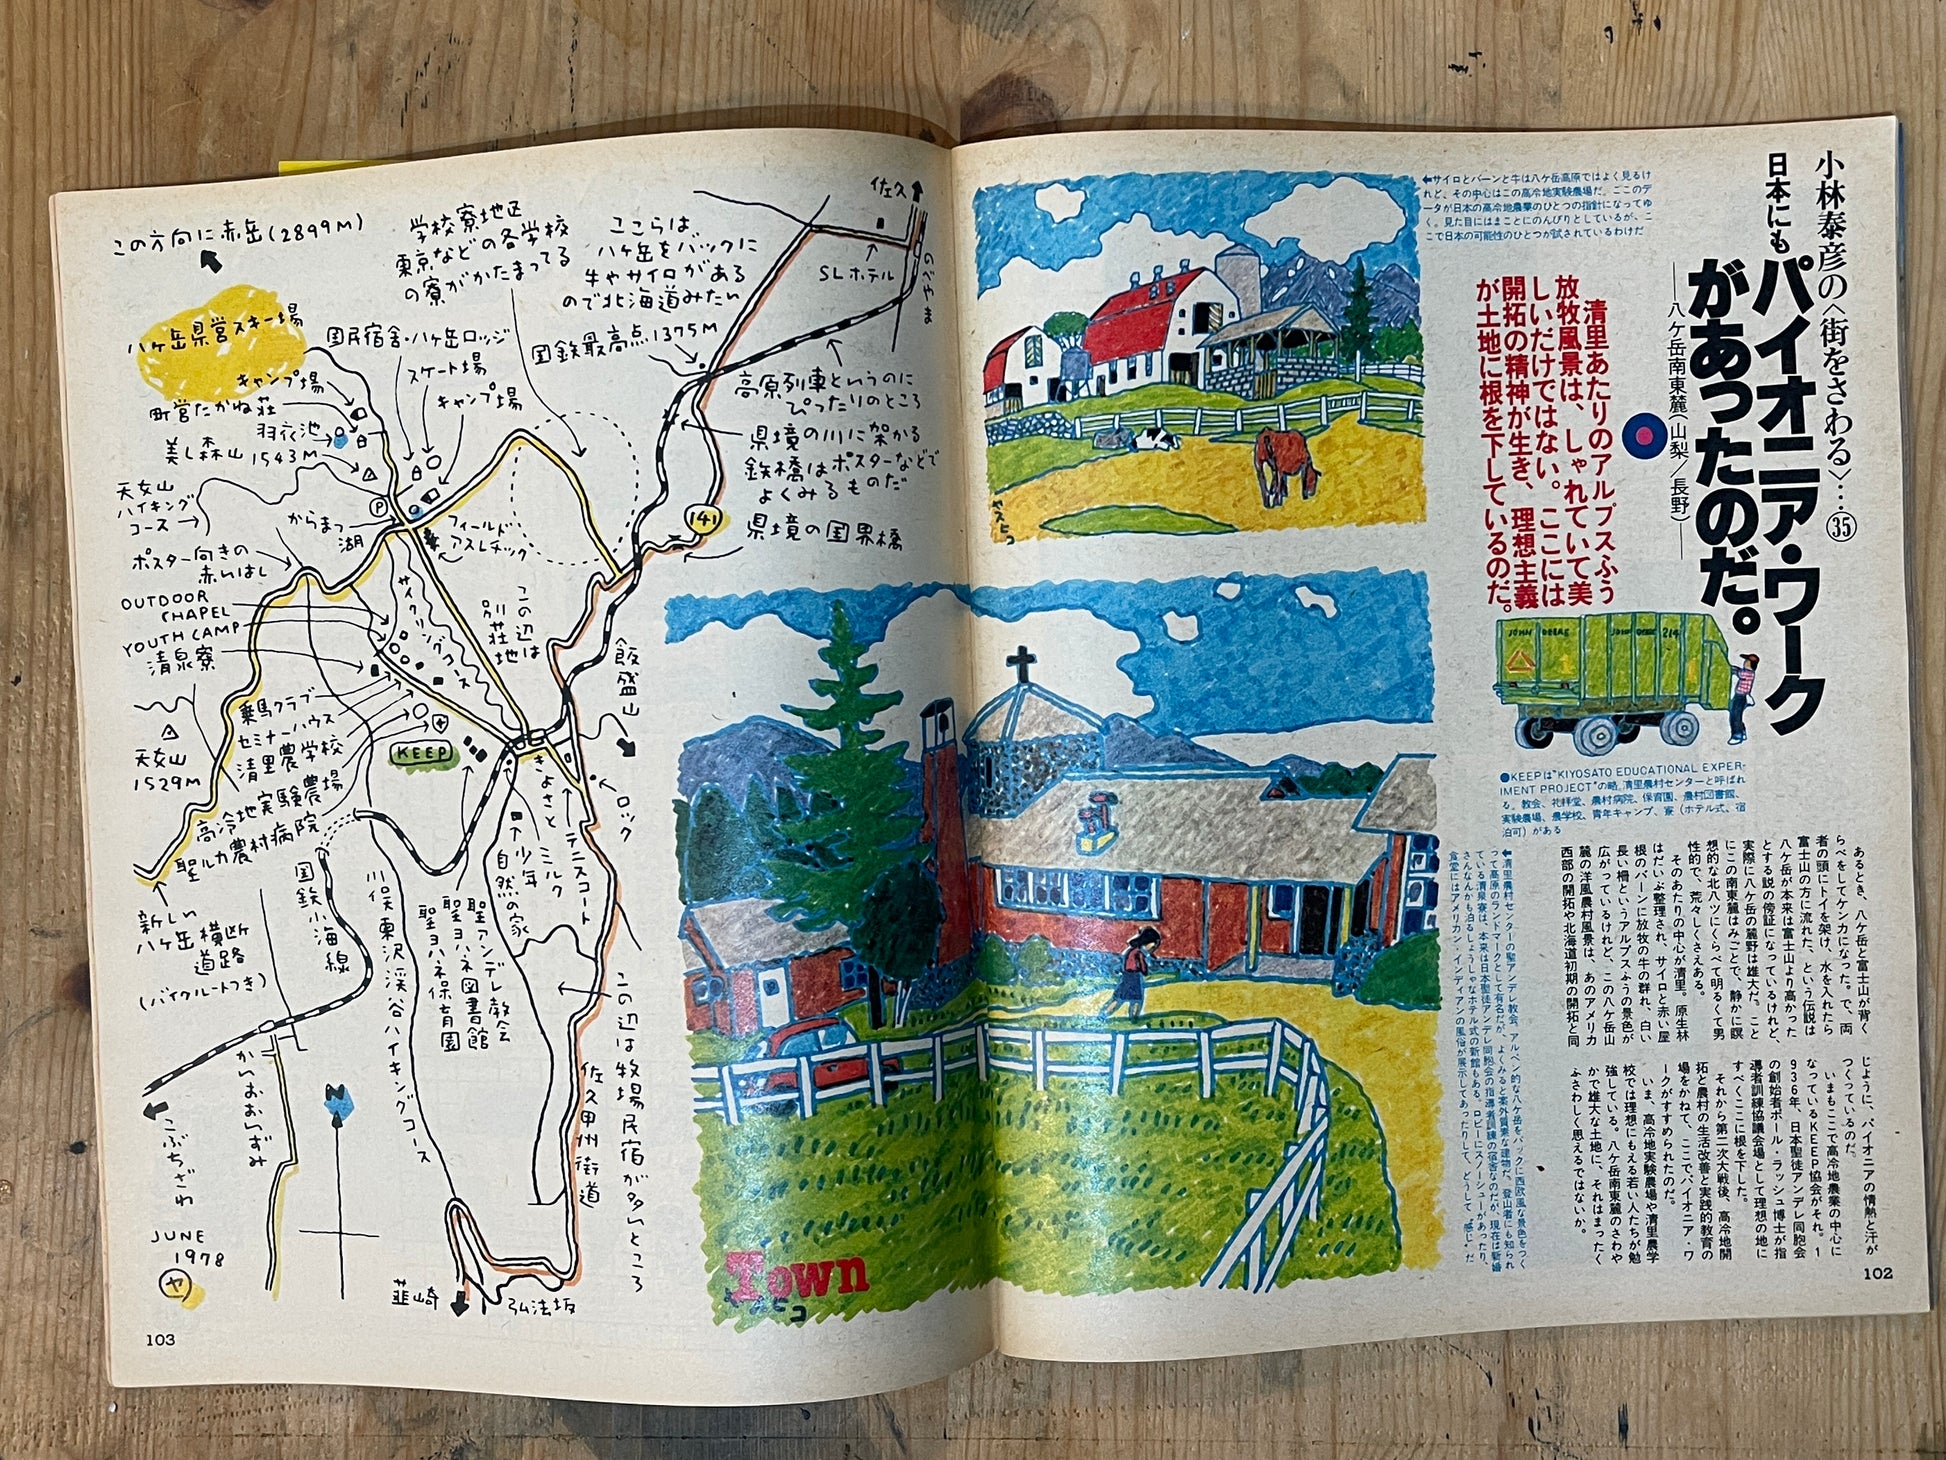 小林泰彦の〈街をさわる〉…㉟
日本にもパイオニア・ワーク
があったのだ。
―八ケ岳南東麓〈山梨／長野〉―
清里あたりのアルプスふうの
放牧風景は、しゃれていて美
しいだけではない。ここには
開拓の精神が生き、理想主義
が土地に根を下しているのだ。
←サイロとバーンと牛は八ケ岳高原ではよく見るけ
れど、その中心はこの高冷地実験農場だ。ここのデ
ータが日本の高冷地農業のひとつの指針になってゆ
く。見た目にはまことにのんびりとしているが、こ
こで日本の可能性のひとつが試されているわけだ
ヤスヒコ
JOHN DEERE
JOHN DEERE 214
●KEEPは"KIYOSATO EDUCATIONAL EXPER-
IMENT PROJECT"の略。清里農村センターと呼ばれ
る。教会、礼拝堂、農村病院、保育園、農村図書館、
実験農場、農学校、青年キャンプ、寮（ホテル式、宿
泊可）がある
あるとき、八ケ岳と富士山が背く
らべをしてケンカになった。で、両
者の頭にトイを架け、水を入れたら
富士山の方に流れた、という伝説は
八ケ岳が本来は富士山より高かった
とする説の傍証になっているけれど、
実際に八ケ岳の麓野は雄大だ。こと
にこの南東麓はみごとで、静かに瞑
想的な北八ツにくらべて明るくて男
性的で、荒々しくさえある。
そのあたりの中心が清里。原生林
はだいぶ整理され、サイロと赤い屋
根のバーンに放牧の牛の群れ、白い
長い柵というアルプスふうの景色が
広がっているけれど、この八ケ岳山
麓の洋風農村風景は、あのアメリカ
西部の開拓や北海道初期の開拓と同
じように、パイオニアの情熱と汗が
つくっているのだ。
いまもここで高冷地農業の中心に
なっているKEEP協会がそれ。1
936年、日本聖徒アンデレ同胞会
の創始者ポール・ラッシュ博士が指
導者訓練協議会場として理想の地に
すべくここに根を下した。
それから第二次大戦後、高冷地開
拓と農村の生活改善と実践的教育の
場をかねて、ここでパイオニア・ワ
ークがすすめられたのだ。
いま、高冷地実験農場や清里農学
校では理想にもえる若い人たちが勉
強している。八ケ岳南東麓のさわや
かで雄大な土地に、それはまったく
ふさわしく思えるではないか。
←清里農村センターの聖アンデレ教会。アルペン的な八ケ岳をバックに西欧風な景色をつく
って高原のランドマークとして有名だが、よくみると案外質素な建物だ。登山者にも知られ
ている清泉寮は、本来は日本聖徒アンデレ同胞会の指導者訓練の宿舎なのだが、現在は新婚
さんなんかも泊るしょうしゃなホテル式の新館もある。ロビーにスノーシューがあったり、
食堂にはアメリカン・インディアンの風俗が展示してあったりして、どうして"感じ"だ
102
Town
ヒコ
この方向に赤岳(2899M)
学校寮地区
東京などの各学校
の寮がかたまってる
ここらは
八ヶ岳をバックに
牛やサイロがある
ので北海道みたい
佐久
SLホテル
のべやま
八ヶ岳県営スキー場
国民宿舎・八ヶ岳ロッジ
スケート場
キャンプ場
国鉄最高点1375M
高原列車というのに
ぴったりのところ
県境の川に架かる
鉄橋はポスターなどで
よくみるものだ
141
県境の国界橋
キャンプ場
町営たかね荘
羽衣池
美し森山1543M
天女山
ハイキング
コース
P
からまつ
湖
フィールド
アスレチック
ポスター向きの
赤いはし
OUTDOOR
CHAPEL
YOUTH CAMP
清泉寮
サイクリングコース
この辺は
別荘地
飯盛山
乗馬クラブ
セミナーハウス
清里農学校
高冷地実験農場
聖ルカ農村病院
KEEP
天女山
1529M
きよさと
ロック
ミルク
テニスコート
少年
自然の家
新しい
八ヶ岳横断
道路
(バイクルートつき)
国鉄小海線
川俣東沢渓谷ハイキングコース
聖アンデレ教会
聖ヨハネ図書館
聖ヨハネ保育園
この辺は牧場民宿が多いところ
佐久甲州街道
かいおおいずみ
こぶちざわ
N
JUNE
1978
ヤ
韮崎
弘法坂
103